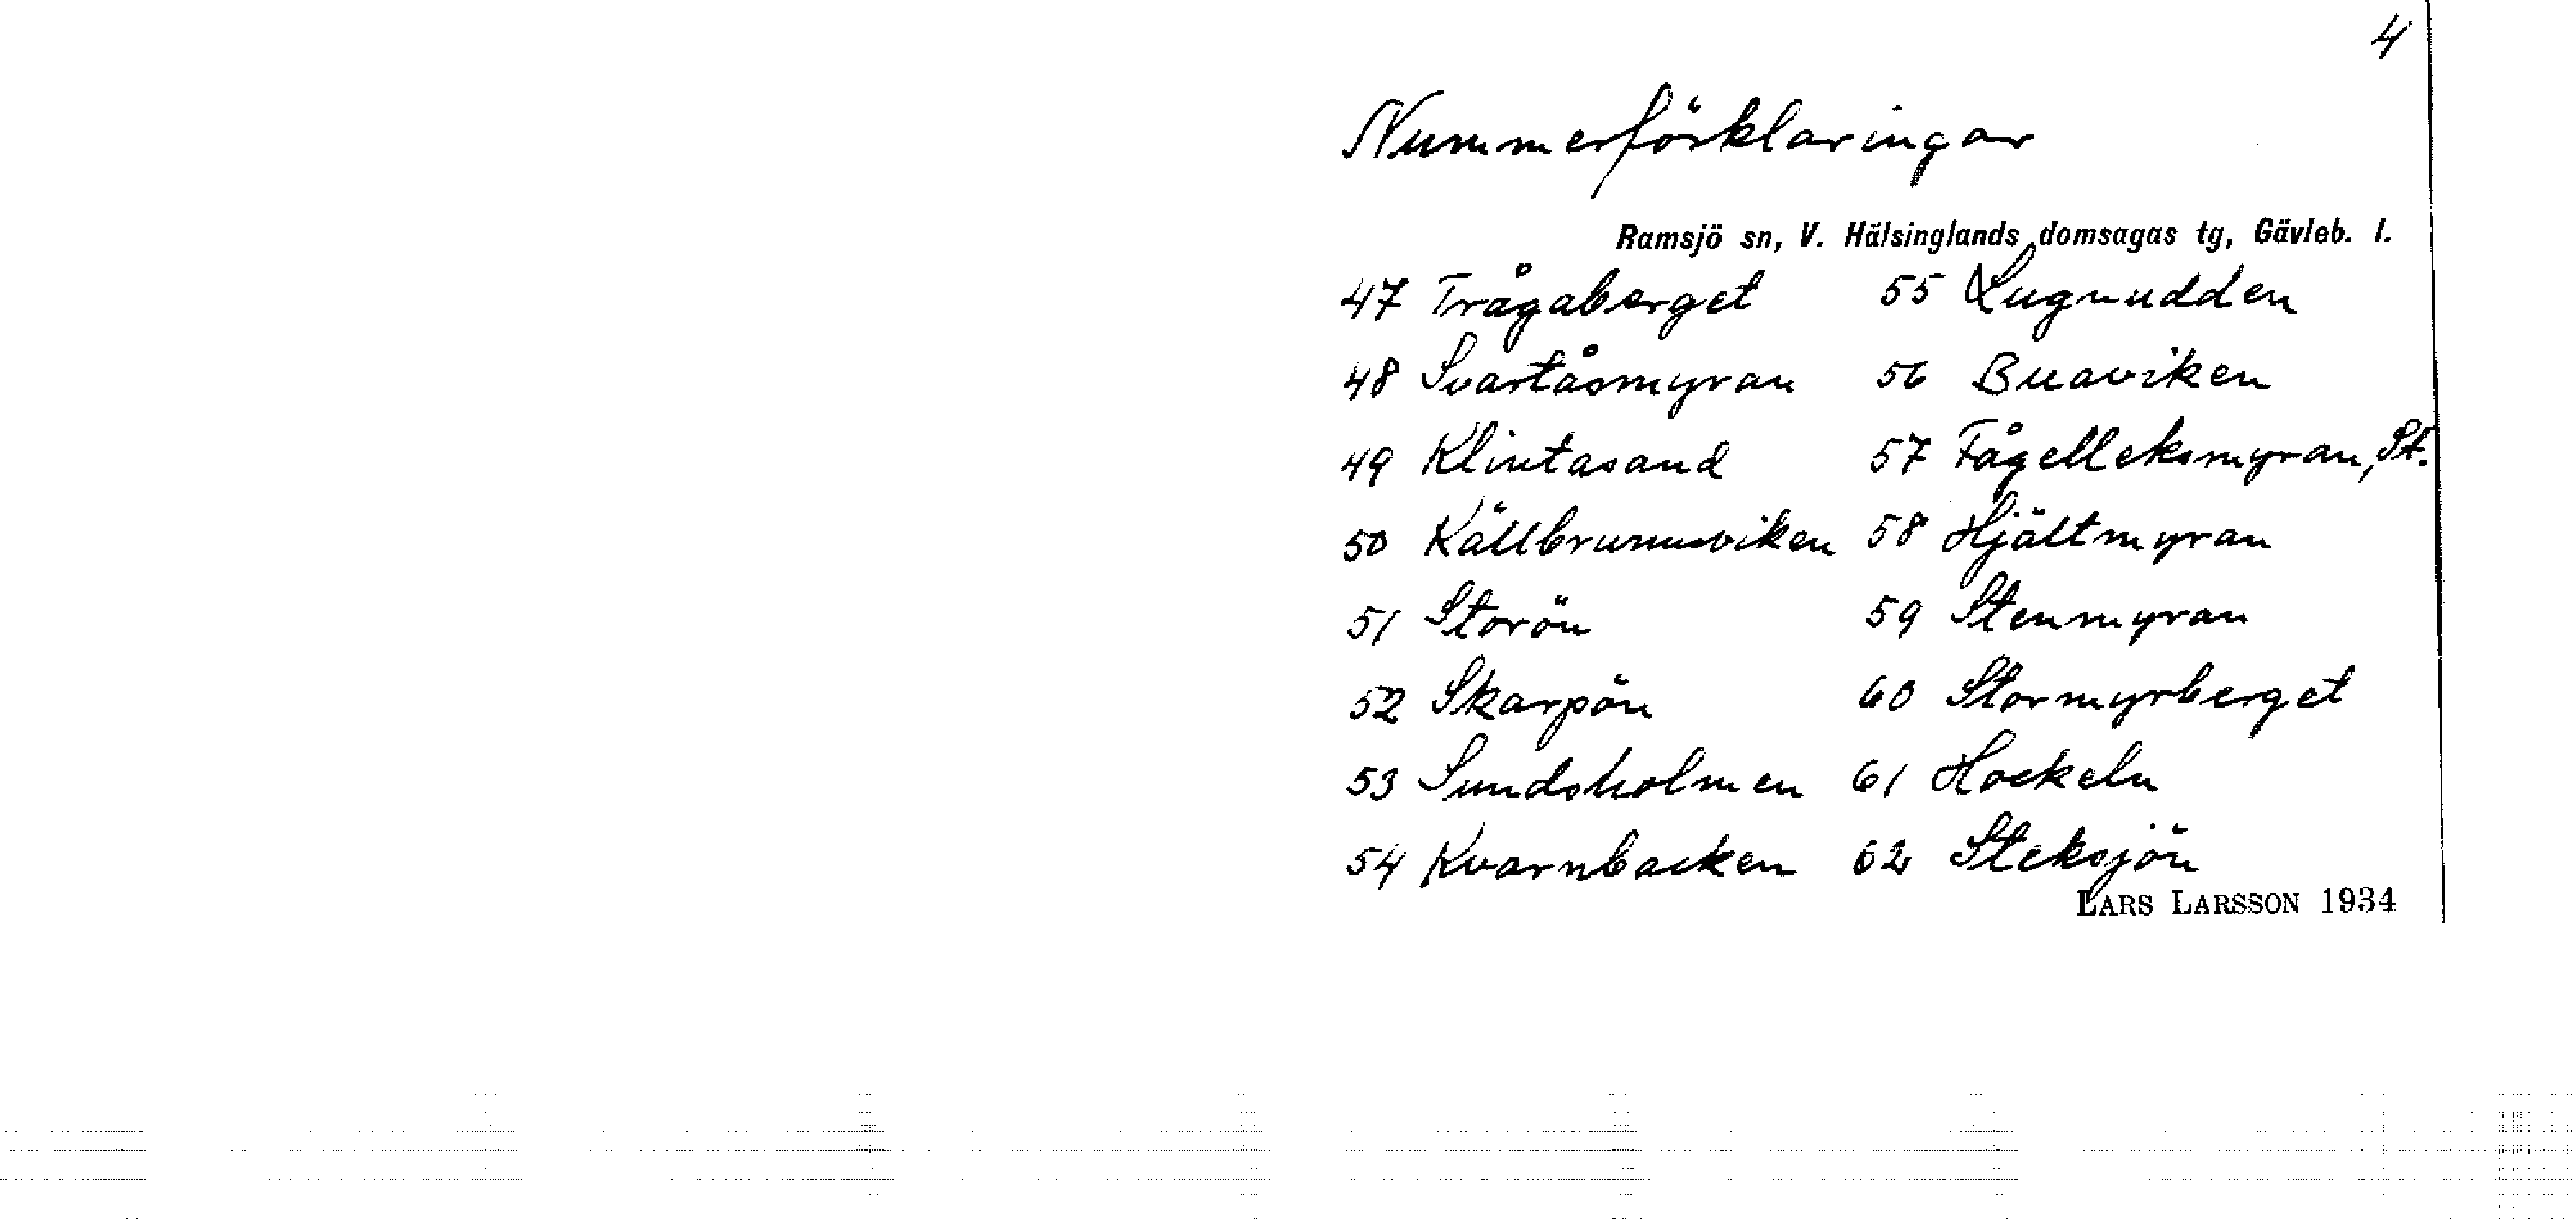 4
Nummerförklaringar
Ramsjö sn, V. Hälsinglands domsagas tg, Gävleb. l.
47 Trågaberget 55 Lugnudden
48 Svartåsmyran 56 Buaviken
49 Klintasand 57 Fågelleksmyran, St.
50 Källbrunnsviken 58 Hjältmyran
51 Storön 59 Stenmyran
52 Skarpön 60 Stormyrberget
53 Sundsholmen 61 Hockeln
54 Kvarnbacken 62 Steksjön
LARS LARSSON 1934